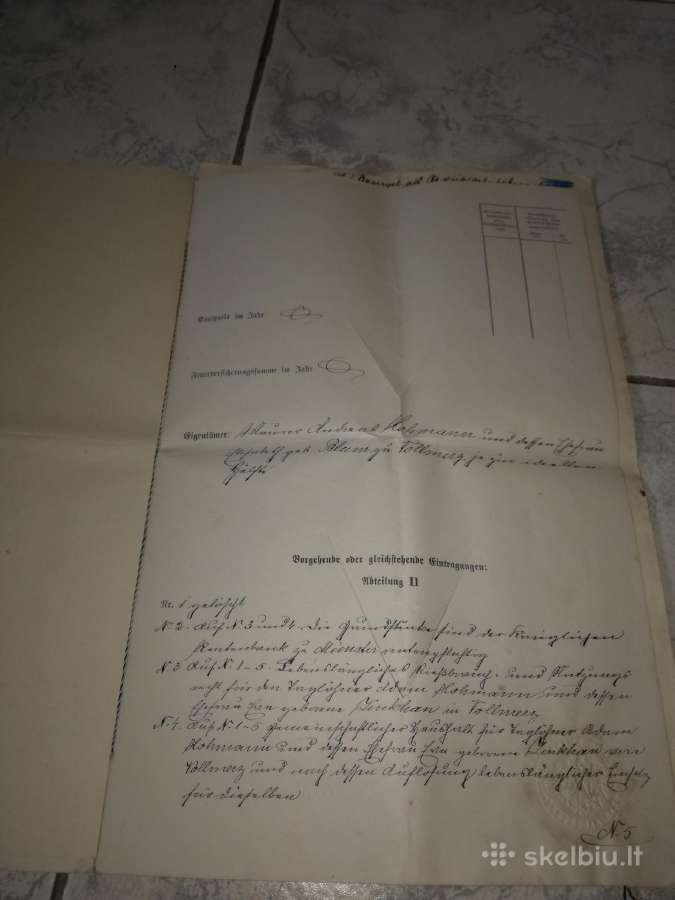 Kaufpreis im Jahr
Feuerversicherungssumme im Jahr
Eigentümer: Maurer Andreas Hohmann und dessen Ehefrau
Elisabeth geb. Blum zu Vollmerz je zur ideellen
Hälfte
Vorgehende oder gleichstehende Eintragungen:
Abteilung II
Nr. 1 gelöscht
N. 2. Auf N. 3 und 4. Die Grundstücke sind der Königlichen
Rentenbank zu Münster rentenpflichtig
N 3 Auf N 1-5. Lebenslängliches Nießbrauch- und Nutzungs
recht für den Taglöhner Adam Hohmann und dessen
Ehefrau Eva geborene in Vollmerz
N 4. Auf N 1-5 gemeinschaftlicher Haushalt für Taglöhner Adam
Hohmann und dessen Ehefrau Eva geborene von
Vollmerz und nach dessen Auflösung lebenslänglicher Einsitz
für dieselben
N. 5
skelbiu.lt